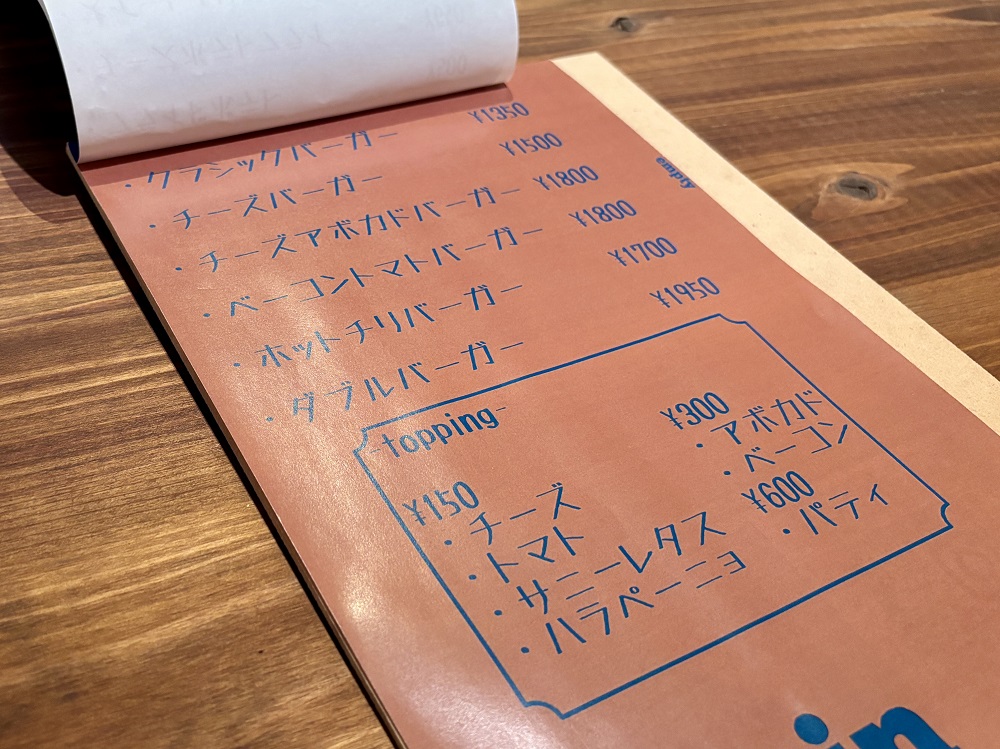 ・クラシックバーガー ¥1350
・チーズバーガー ¥1500
・チーズアボカドバーガー ¥1800
・ベーコントマトバーガー ¥1800
・ホットチリバーガー ¥1700
・ダブルバーガー ¥1950
-topping-
¥150
・チーズ
・トマト
・サニーレタス
・ハラペーニョ
¥300
・アボカド
・ベーコン
¥600
・パティ
in